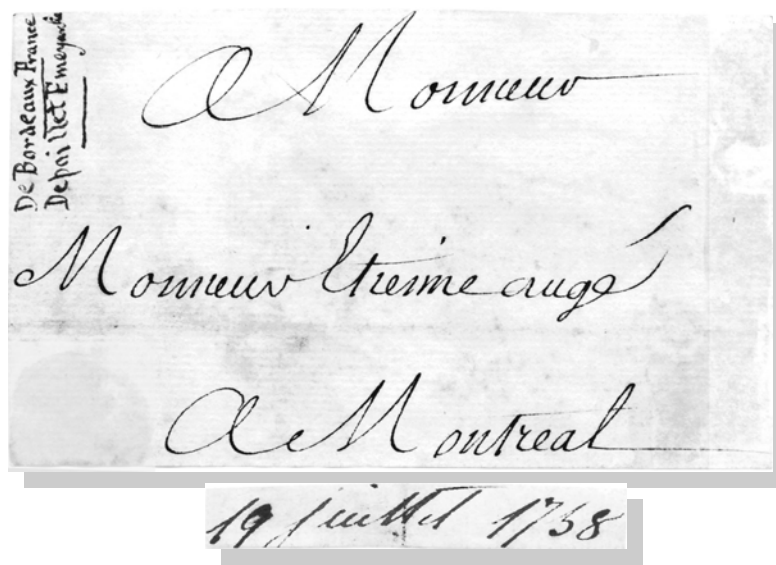 De Bordeaux France
Depaillet Emeyanche
A Monsieur
Monsieur Etienne augé
A Montreal
19 juillet 1758